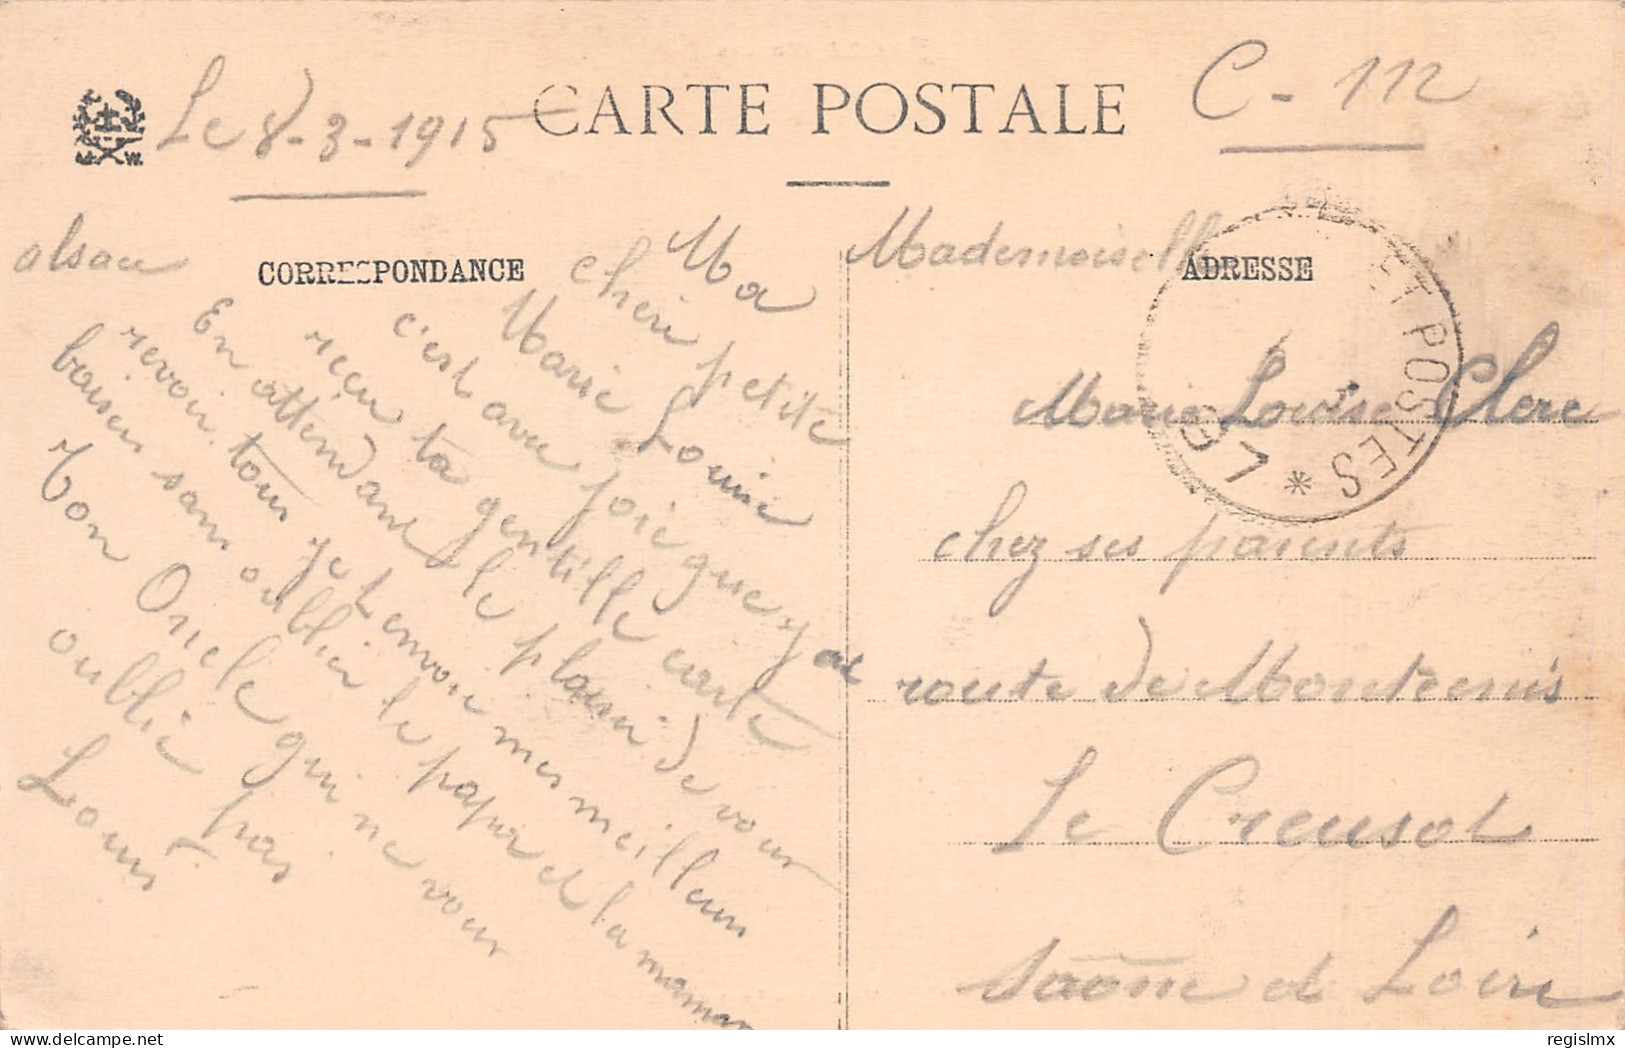 Le 8-3-1915
CARTE POSTALE
C-112
alsace
CORRESPONDANCE
Ma petite
cheri Marie Louise
c'est avec joie que j'ai
reçu ta gentille carte
En attendant le plaisir de vous
revoir tous je t'envoie mes meilleurs
baisers sans oublier le papa et la maman
Ton Oncle qui ne vous
oublie pas
Louis
Mademoiselle
ADRESSE
Marie Louise Clere
chez ses parents
route de Montcenis
Le Creusot
Saône et Loire
ET POSTES *
regislmx